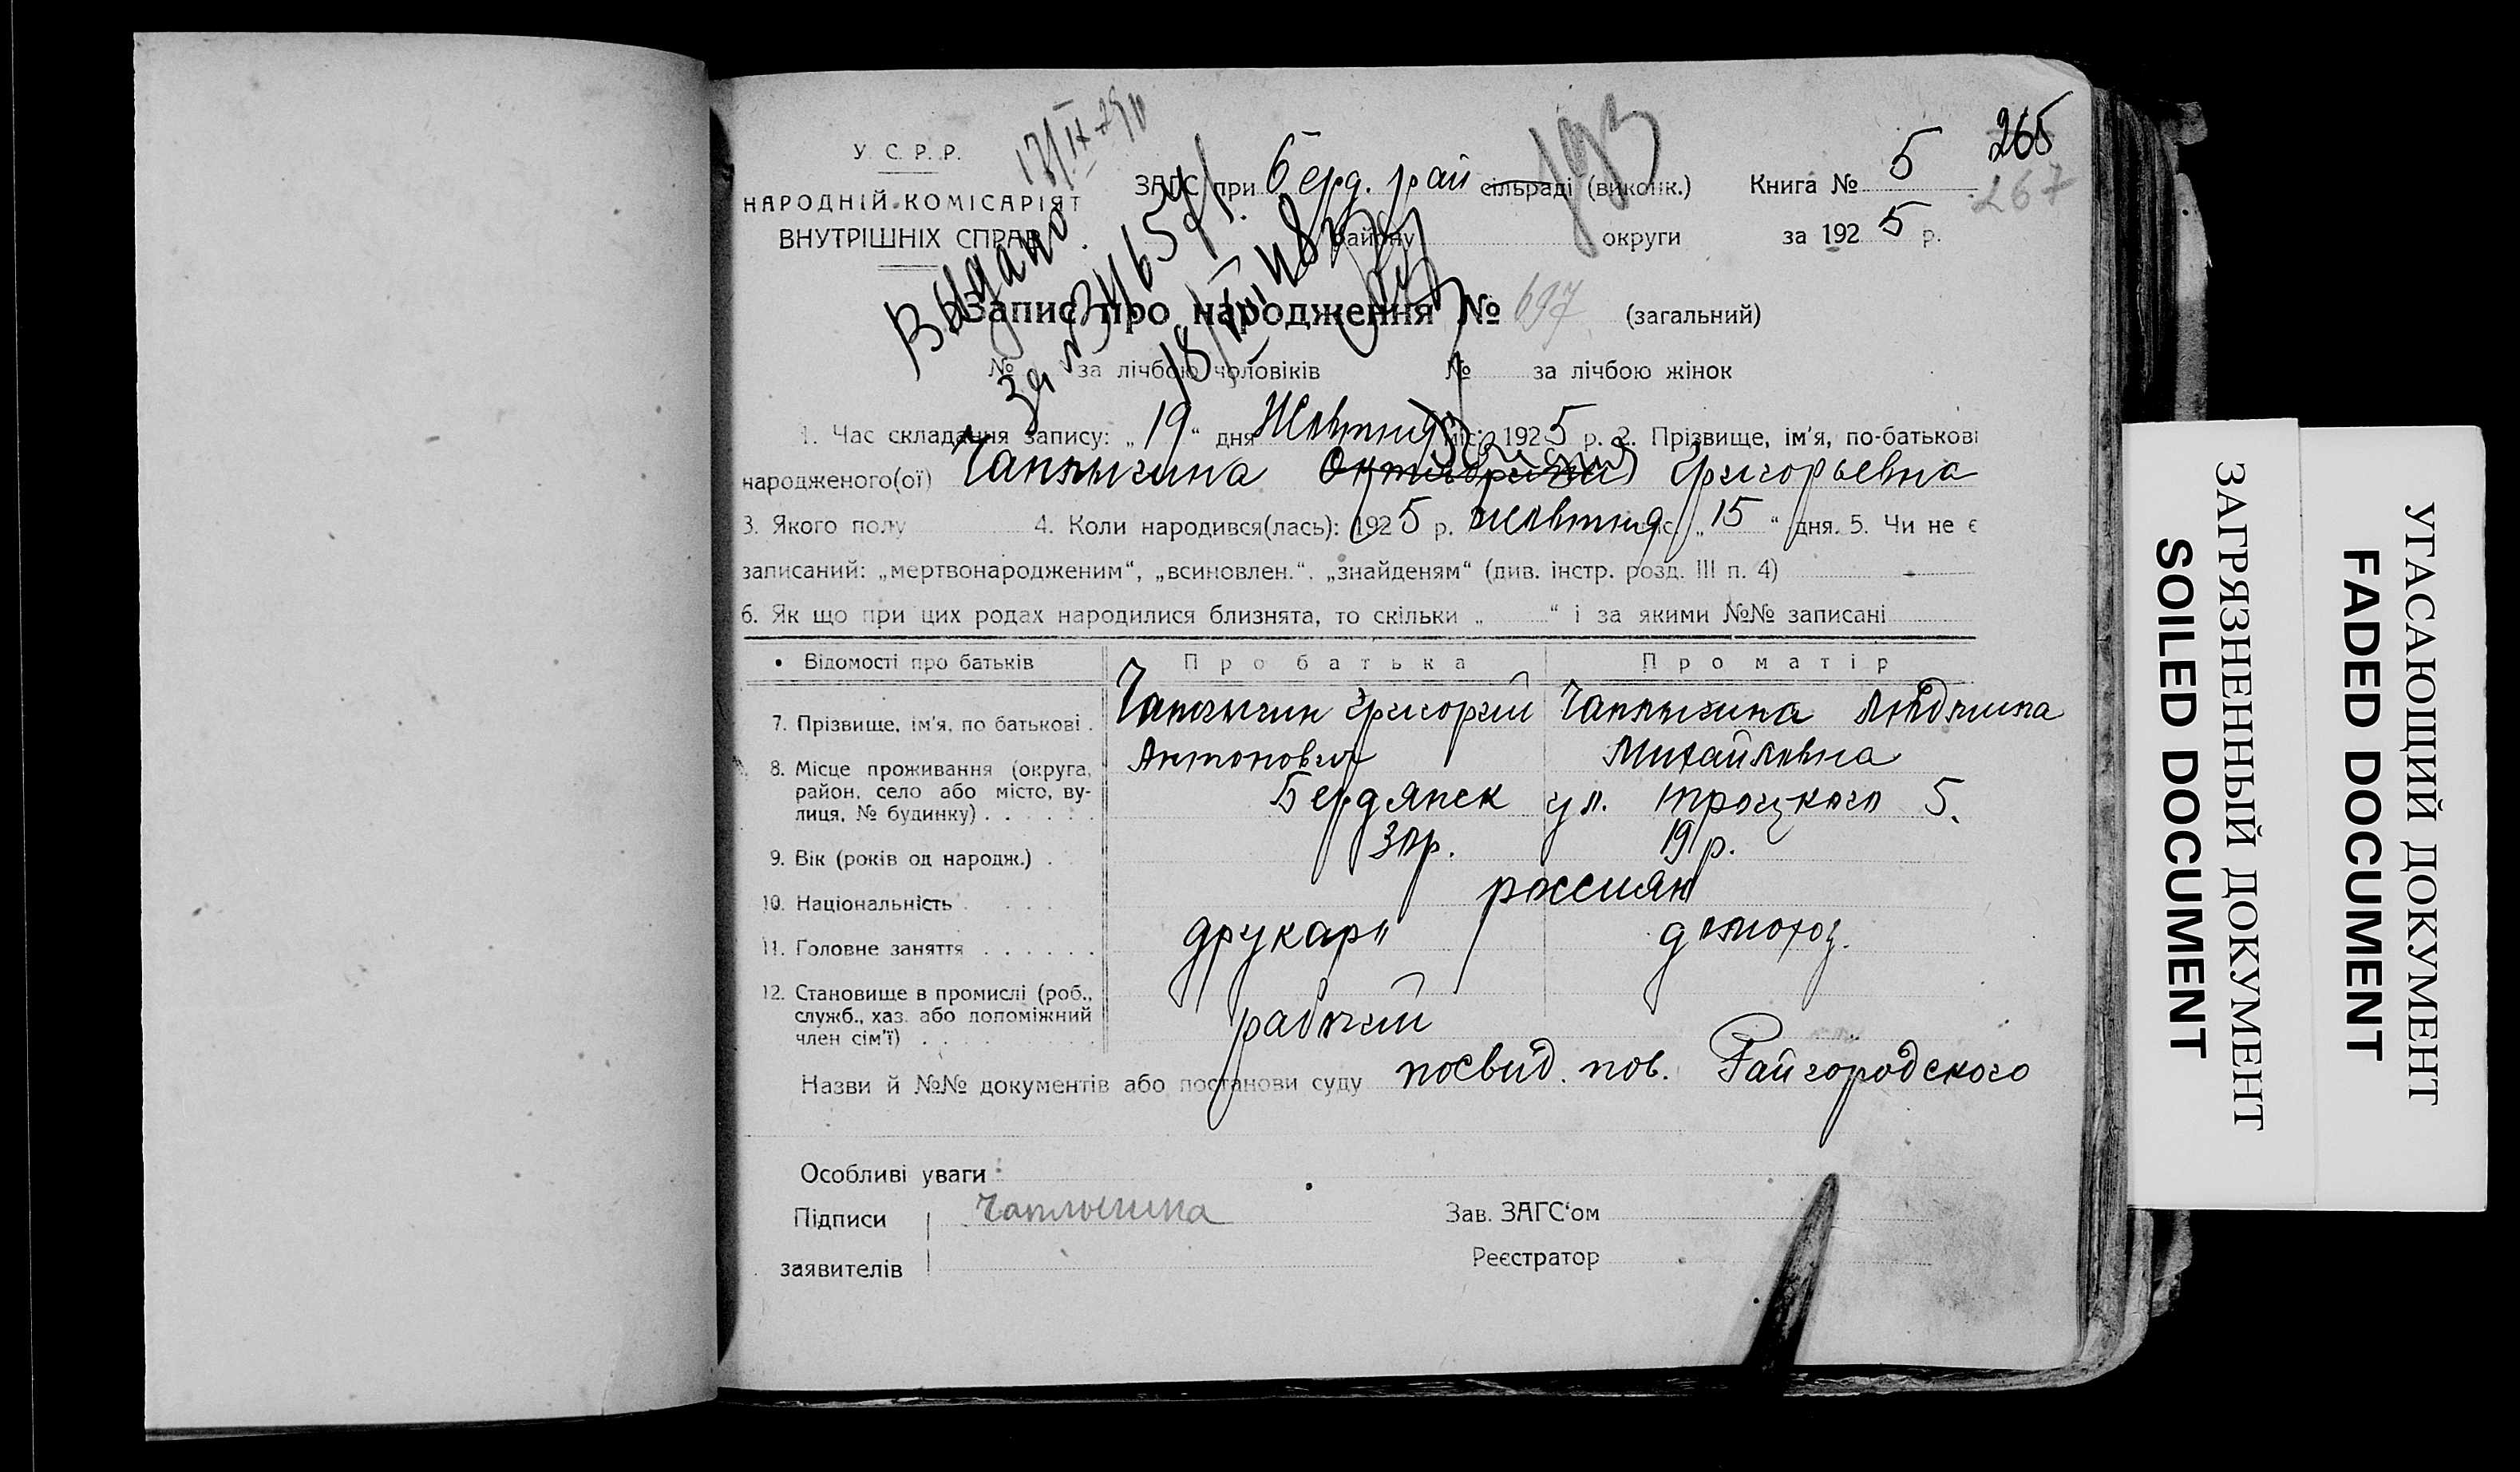 265
267
У. С. Р. Р.
НАРОДНІЙ КОМІСАРІЯТ
ВНУТРІШНІХ СПРАВ
ЗАГС при Берд. рай сільраді (виконк.)
району округи
Книга № 5
за 192 5 р.
193
Выдано
Запис про народження № 697 (загальний)
№ за лічбою чоловіків № за лічбою жінок
1. Час складання запису: „ 19 “ дня Жовтня міс. 192 5 р. 2. Прізвище, ім’я, по-батькові
народженого(ої) Чаплыгина Октябрина Григорьевна
3. Якого полу 4. Коли народився(лась): 192 5 р. жовтня міс. „ 15 “ дня. 5. Чи не є
записаний: „мертвонародженим“, „всиновлен.“, „знайденям“ (див. інстр. розд. III п. 4) -
6. Як що при цих родах народилися близнята, то скільки „ “ і за якими №№ записані
Відомості про батьків Про батька Про матір
7. Прізвище, ім’я, по батькові . Чаплыгин Григорий Чаплыгина Людмила
Антонович Михайловна
8. Місце проживання (округа,
район, село або місто, ву-
лиця, № будинку) . . . . . . Бердянск ул. Троцкого 5.
9. Вік (років од народж.) . 30р. 19 р.
10. Національність . . . . россиян
11. Головне заняття . . . . . . друкарь домохоз.
12. Становище в промислі (роб.,
служб., хаз. або допоміжний
член сім’ї) . . . . . . . . . рабочий
Назви й №№ документів або постанови суду посвид. пов. Райгородского
Особливі уваги
Підписи Чаплыгина Зав. ЗАГС‘ом
заявителів Реєстратор
ЗАГРЯЗНЕННЫЙ ДОКУМЕНТ
SOILED DOCUMENT
УГАСАЮЩИЙ ДОКУМЕНТ
FADED DOCUMENT